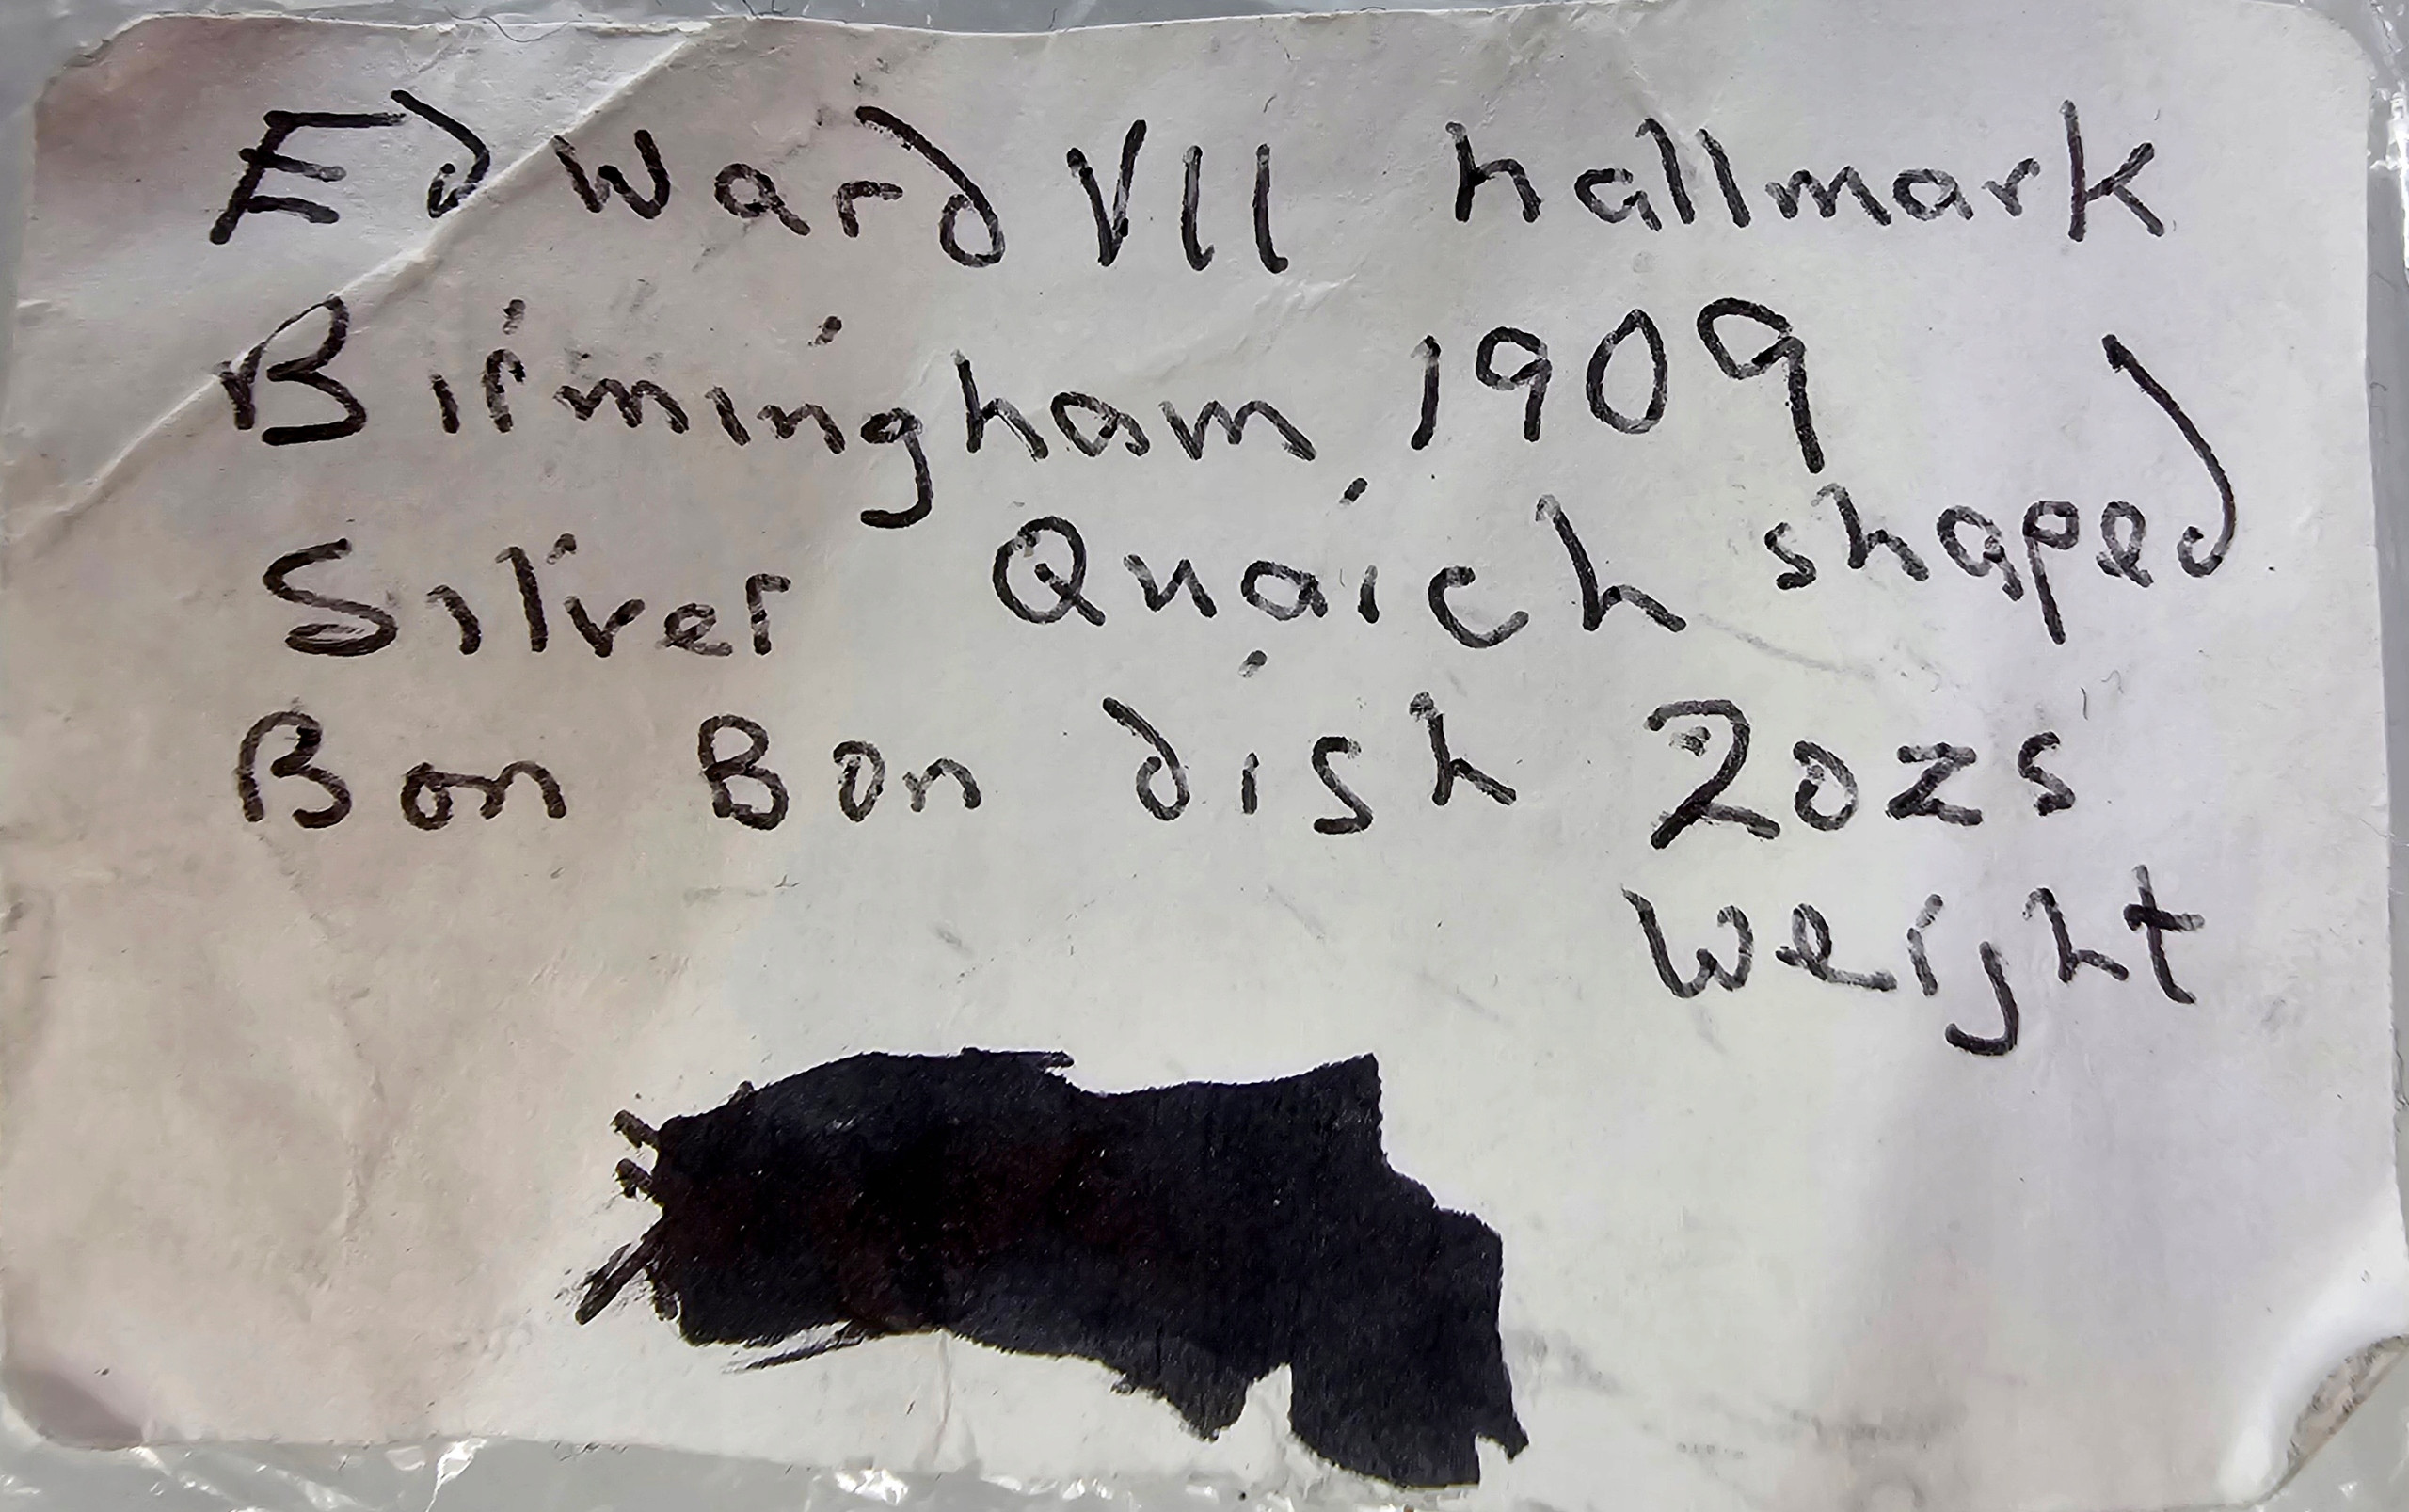 Edward VII hallmark
Birmingham 1909
Silver Quaich shaped
Bon Bon dish 2ozs
Weight